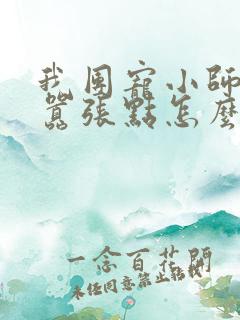 我團寵小師
囂張點怎麼
一念百花開
未经同意禁止转载